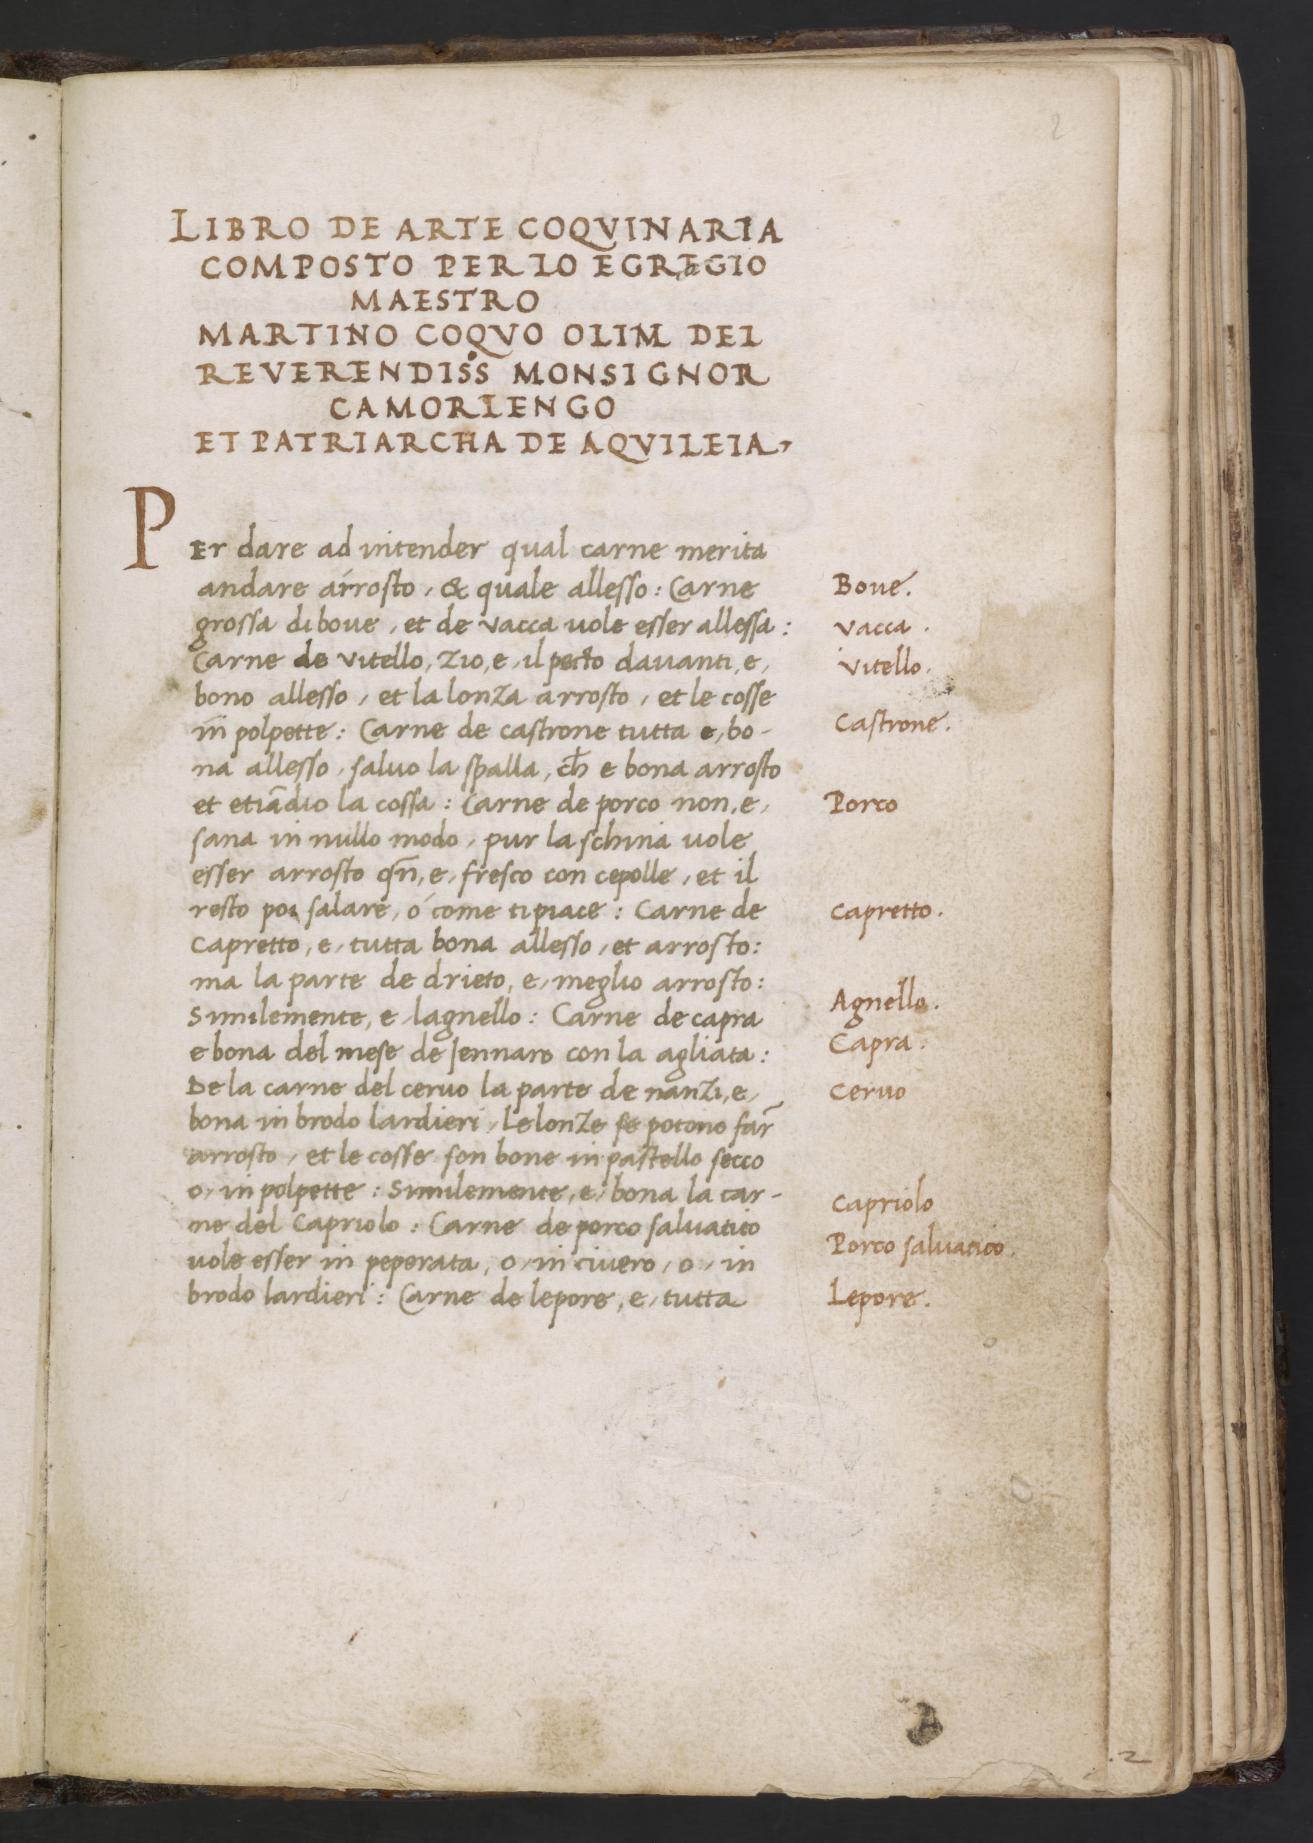 2
LIBRO DE ARTE COQVINARIA
COMPOSTO PER LO EGREGIO
MAESTRO
MARTINO COQVO OLIM DEL
REVERENDISS MONSIGNOR
CAMORLENGO
ET PATRIARCHA DE AQVILEIA,
PEr dare ad intender qual carne merita
andare arrosto, & quale allesso: Carne
grossa di boue, et de vacca uole esser allessa:
Carne de vitello, zio, e, il pecto dauanti, e,
bono allesso, et la lonza arrosto, et le cosse
in polpette: Carne de castrone tutta e, bo-
na allesso, saluo la spalla, ch̄ e bona arrosto
et etiādio la cossa: Carne de porco non, e,
sana in nullo modo, pur la schina uole
esser arrosto qn̄, e, fresco con cepolle, et il
resto poi salare, o come ti piace: Carne de
Capretto, e, tutta bona allesso, et arrosto:
ma la parte de drieto, e, meglio arrosto:
Similemente, e, lagnello: Carne de capra
e bona del mese de Jennaro con la agliata:
De la carne del ceruo la parte de nanzi, e,
bona in brodo lardieri, Le lonze se potono far̄
arrosto, et le cosse son bone in pastello secco
o, in polpette: Similemente, e, bona la car-
ne del Capriolo: Carne de porco saluatico
uole esser in peperata, o, in ciuero, o, in
brodo lardieri: Carne de lepore, e, tutta
Boue.
Vacca.
Vitello.
Castrone.
Porco
Capretto.
Agnello.
Capra.
Ceruo
Capriolo
Porco saluatico.
Lepore.
A
.2